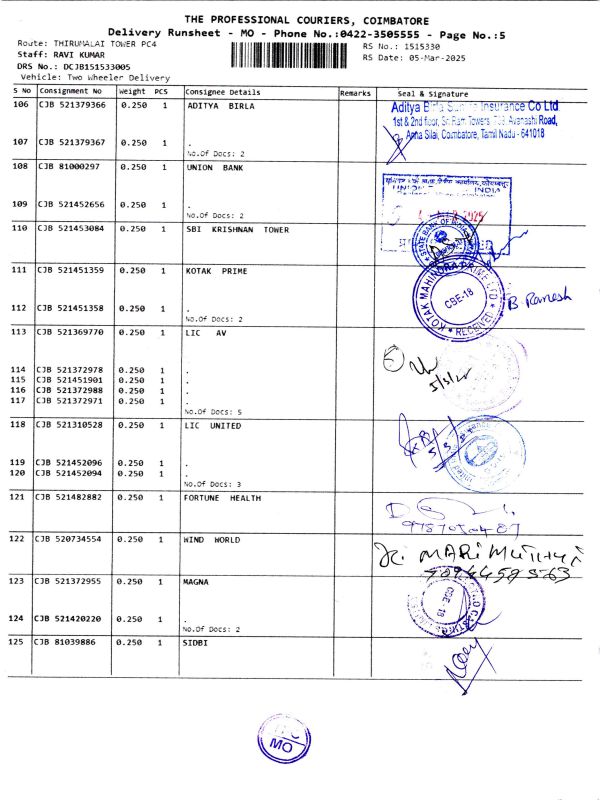 THE PROFESSIONAL COURIERS, COIMBATORE
Delivery Runsheet - MO - Phone No.:0422-3505555 - Page No.:5
Route: THIRUMALAI TOWER PC4
RS No.: 1515330
Staff: RAVI KUMAR
RS Date: 05-Mar-2025
DRS No.: DCJB151533005
Vehicle: Two Wheeler Delivery
S No Consignment No Weight PCS Consignee Details Remarks Seal & Signature
106 CJB 521379366 0.250 1 ADITYA BIRLA
Aditya Birla Insurance Co Ltd
1st & 2nd floor, Sri Ram Towers, Avanashi Road,
Anna Silai, Coimbatore, Tamil Nadu - 641018
107 CJB 521379367 0.250 1 .
No.Of Docs: 2
108 CJB 81000297 0.250 1 UNION BANK
109 CJB 521452656 0.250 1 .
No.Of Docs: 2
110 CJB 521453084 0.250 1 SBI KRISHNAN TOWER
STATE BANK OF
111 CJB 521451359 0.250 1 KOTAK PRIME
KOTAK MAHINDRA PRIME LTD
CBE-18
RECEIVED
B Ramesh
112 CJB 521451358 0.250 1 .
No.Of Docs: 2
113 CJB 521369770 0.250 1 LIC AV
114 CJB 521372978 0.250 1 .
115 CJB 521451901 0.250 1 .
116 CJB 521372988 0.250 1 .
117 CJB 521372971 0.250 1 .
No.Of Docs: 5
118 CJB 521310528 0.250 1 LIC UNITED
119 CJB 521452096 0.250 1 .
120 CJB 521452094 0.250 1 .
No.Of Docs: 3
121 CJB 521482882 0.250 1 FORTUNE HEALTH
122 CJB 520734554 0.250 1 WIND WORLD
123 CJB 521372955 0.250 1 MAGNA
CBE-18
124 CJB 521420220 0.250 1 .
No.Of Docs: 2
125 CJB 81039886 0.250 1 SIDBI
MO